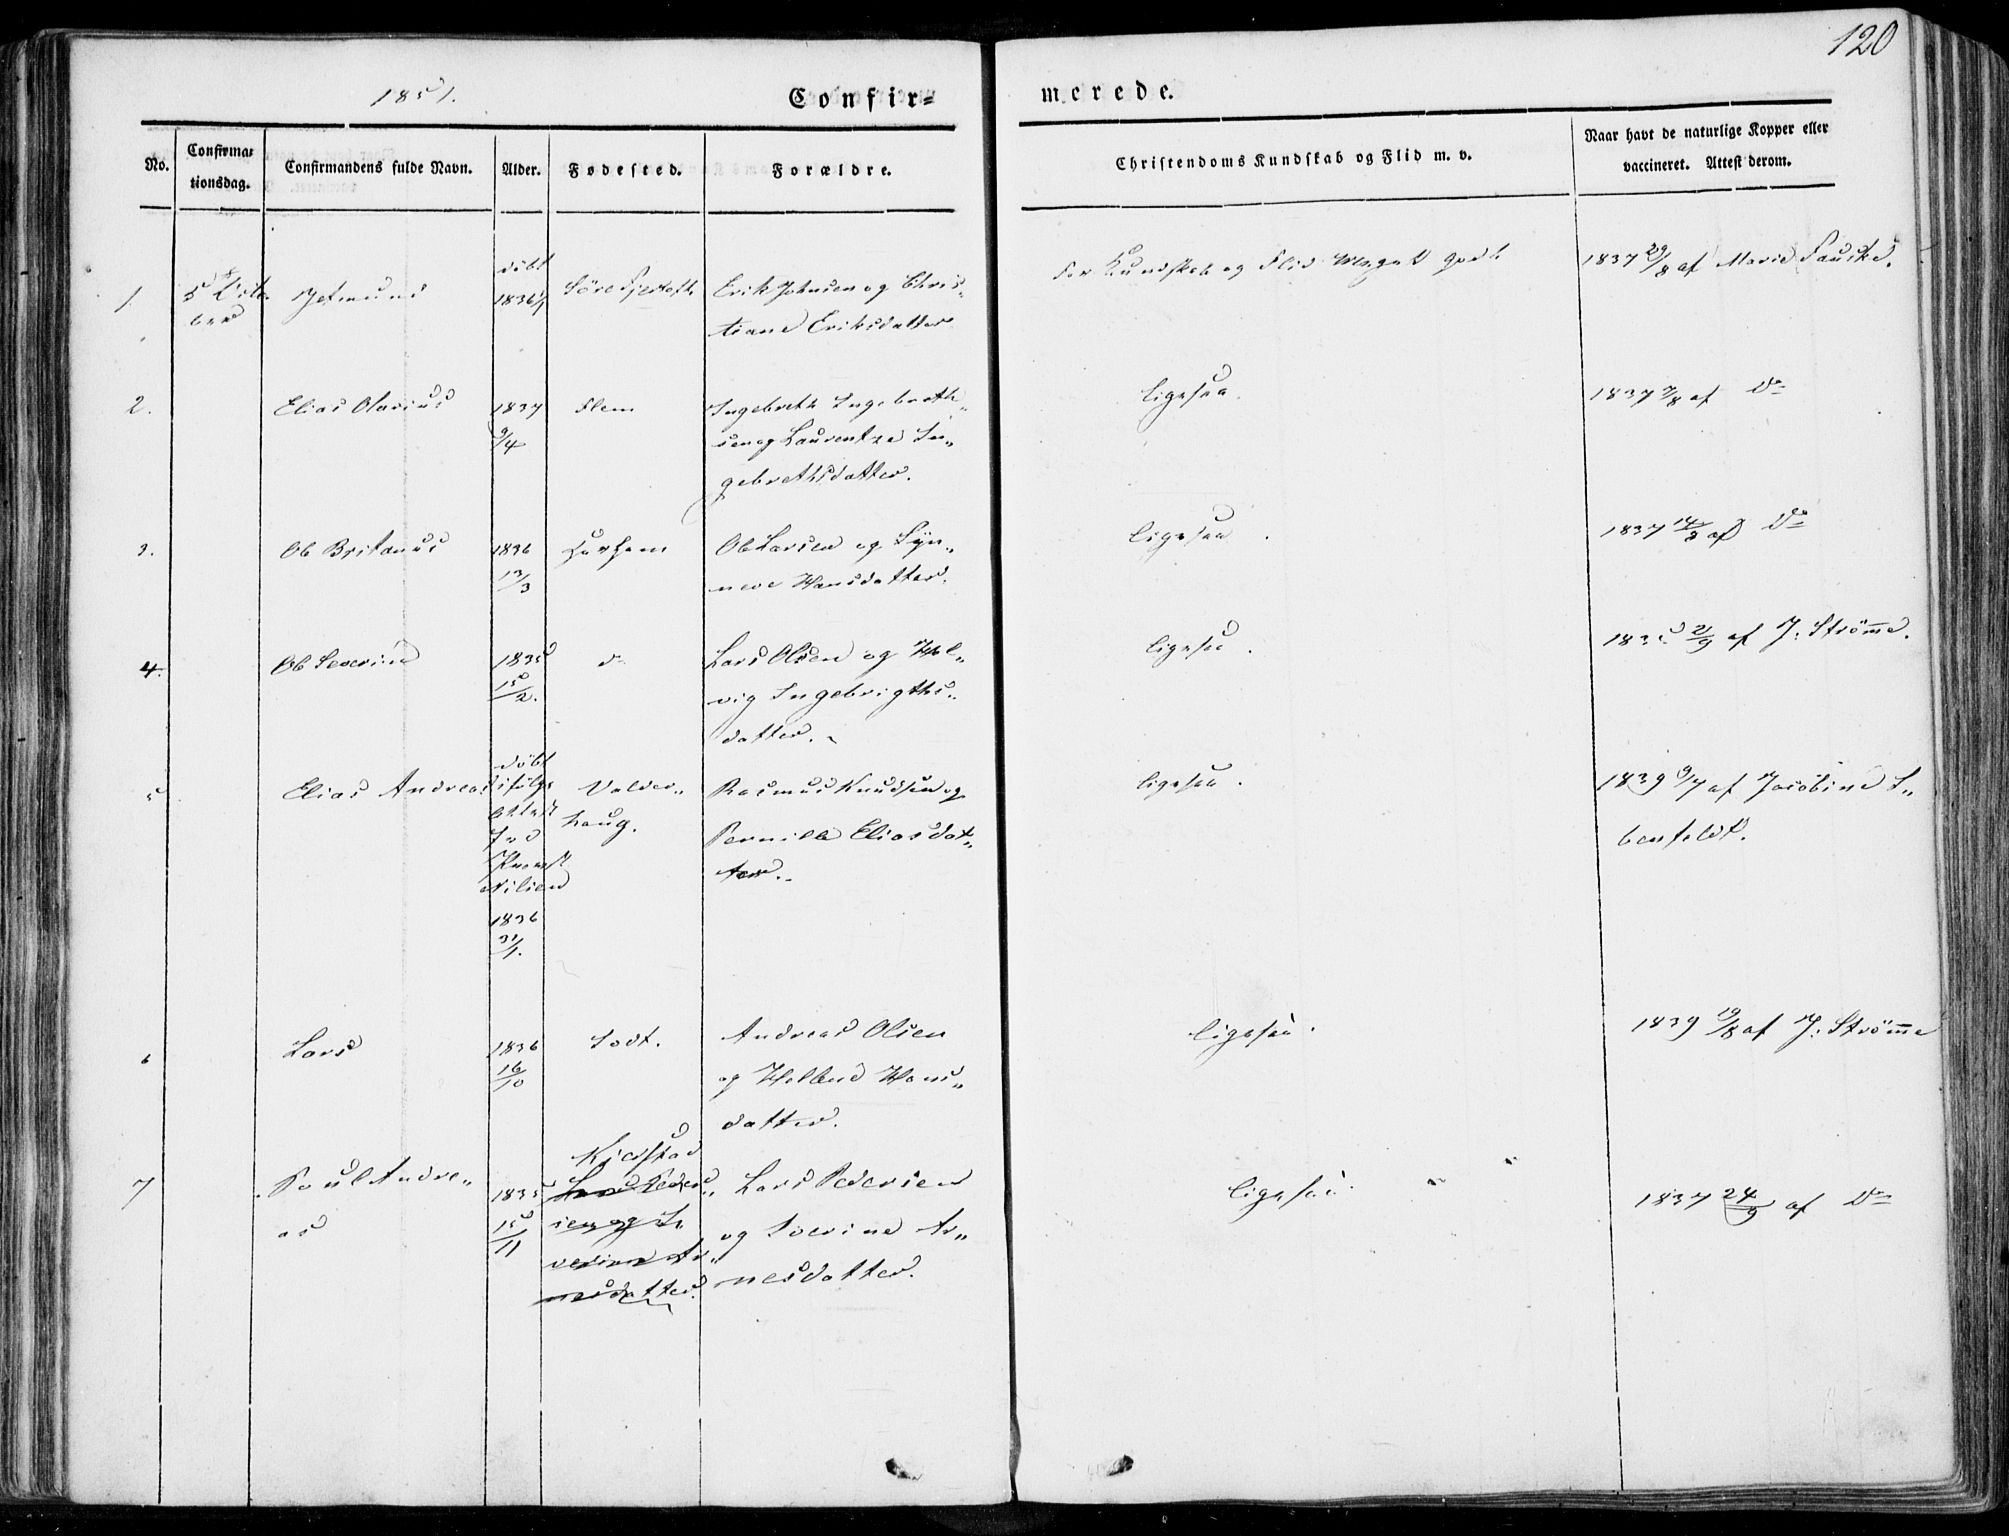 120
1851.
Confir=
merede.
No.
Confirma=
tionsdag.
Confirmandens fulde Navn.
Alder.
Fødested.
Forældre.
Christendoms Kundskab og Flid m. v.
Naar havt de naturlige Kopper eller
vaccineret. Attest derom.
1.
Jetmund
döbt
1836 1/1
Erik Johnsen og Chris„
tiane Eriksdatter
For Kundskab og Flid Meget godt
1837 29/8 af Marie Fauske.
2.
Elias Olarius
1837
9/4
Flem
Ingebreth Ingebreth„
sen og Laurentze In„
gebrethsdatter.
ligesaa.
1837 7/8 af Do
3.
Ole Britanus
1836
13/3
Ole Larsen og Syn„
neve Hansdatter.
ligesaa.
1837 14/8 af Do
4.
Ole Severin
1835
15/2.
do
Lars Olsen og Hel„
vig Ingebrigths„
datter.
ligesaa.
1835 2/9 af J. Strömme.
5
Elias Andreas
döbt
ifølge
Attest
fra
Provst
1836
31/1.
Valder„
haug.
Rasmus Knudsen og
Pernille Eliasdat„
ter.
ligesaa.
1839 9/7 af Jacobine
6
Lars
1836
16/10
Andreas Olsen
og Hellene Hans„
datter.
ligesaa.
1839 19/8 af J. Strömme
7
Poul Andre„
as
1835
15/11
Kjerstad
Lars Peder„
sen og Se
verine Ar„
nesdatter.
Lars Pedersen
og Severine Ar„
nesdatter.
ligesaa.
1837 24/9 af Do